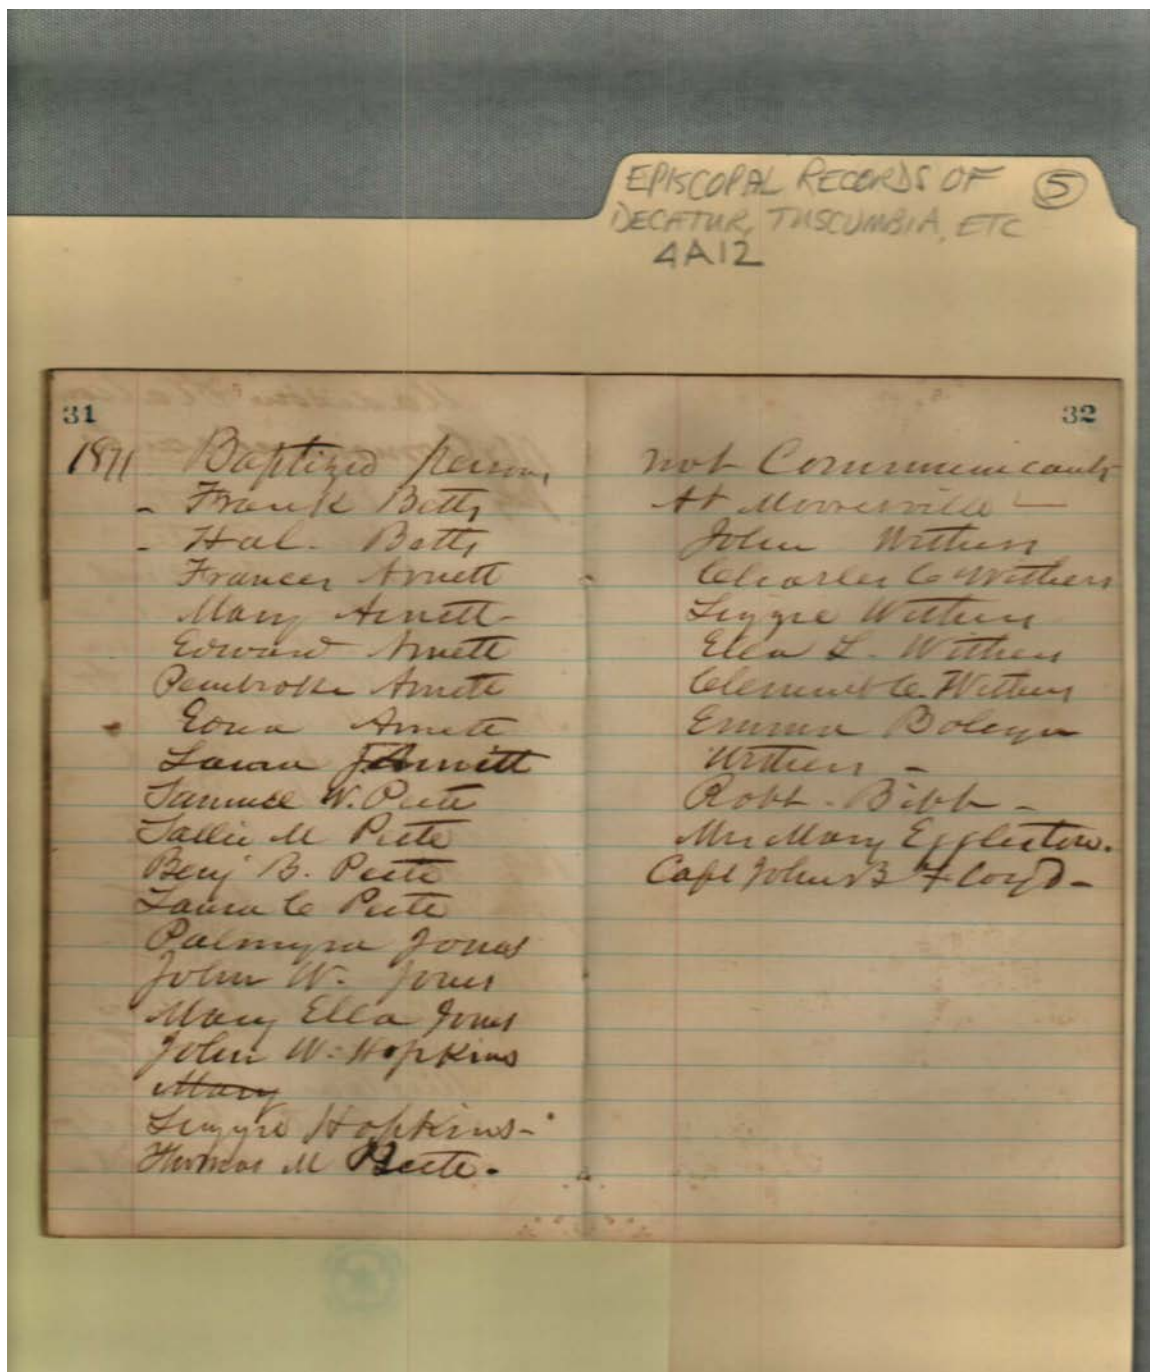 EPISCOPAL RECORDS OF 5
DECATUR, TUSCUMBIA, ETC
4A12
31
1871 Baptized persons
- Frank Betts
- Hal. Betts
Frances Arnett
Mary Arnett
Edward Arnett
Pembroke Arnett
Edna Arnett
Laura J Arnett
Samuel W. Peete
Sallie M Peete
Benj B. Peete
Laura C Peete
Palmyra Jones
John W. Jones
Mary Ella Jones
John W. Hopkins
Mary
Lizzie Hopkins-
Thomas M Peete.
32
not Communicants
At Mooresville
John Withers
Charles C Withers
Lizzie Withers
Ella L. Withers
Clement C. Withers
Emma Boleyn
Withers -
Robt. Bibb -
Mrs Mary Eggleston.
Capt John B Floyd -